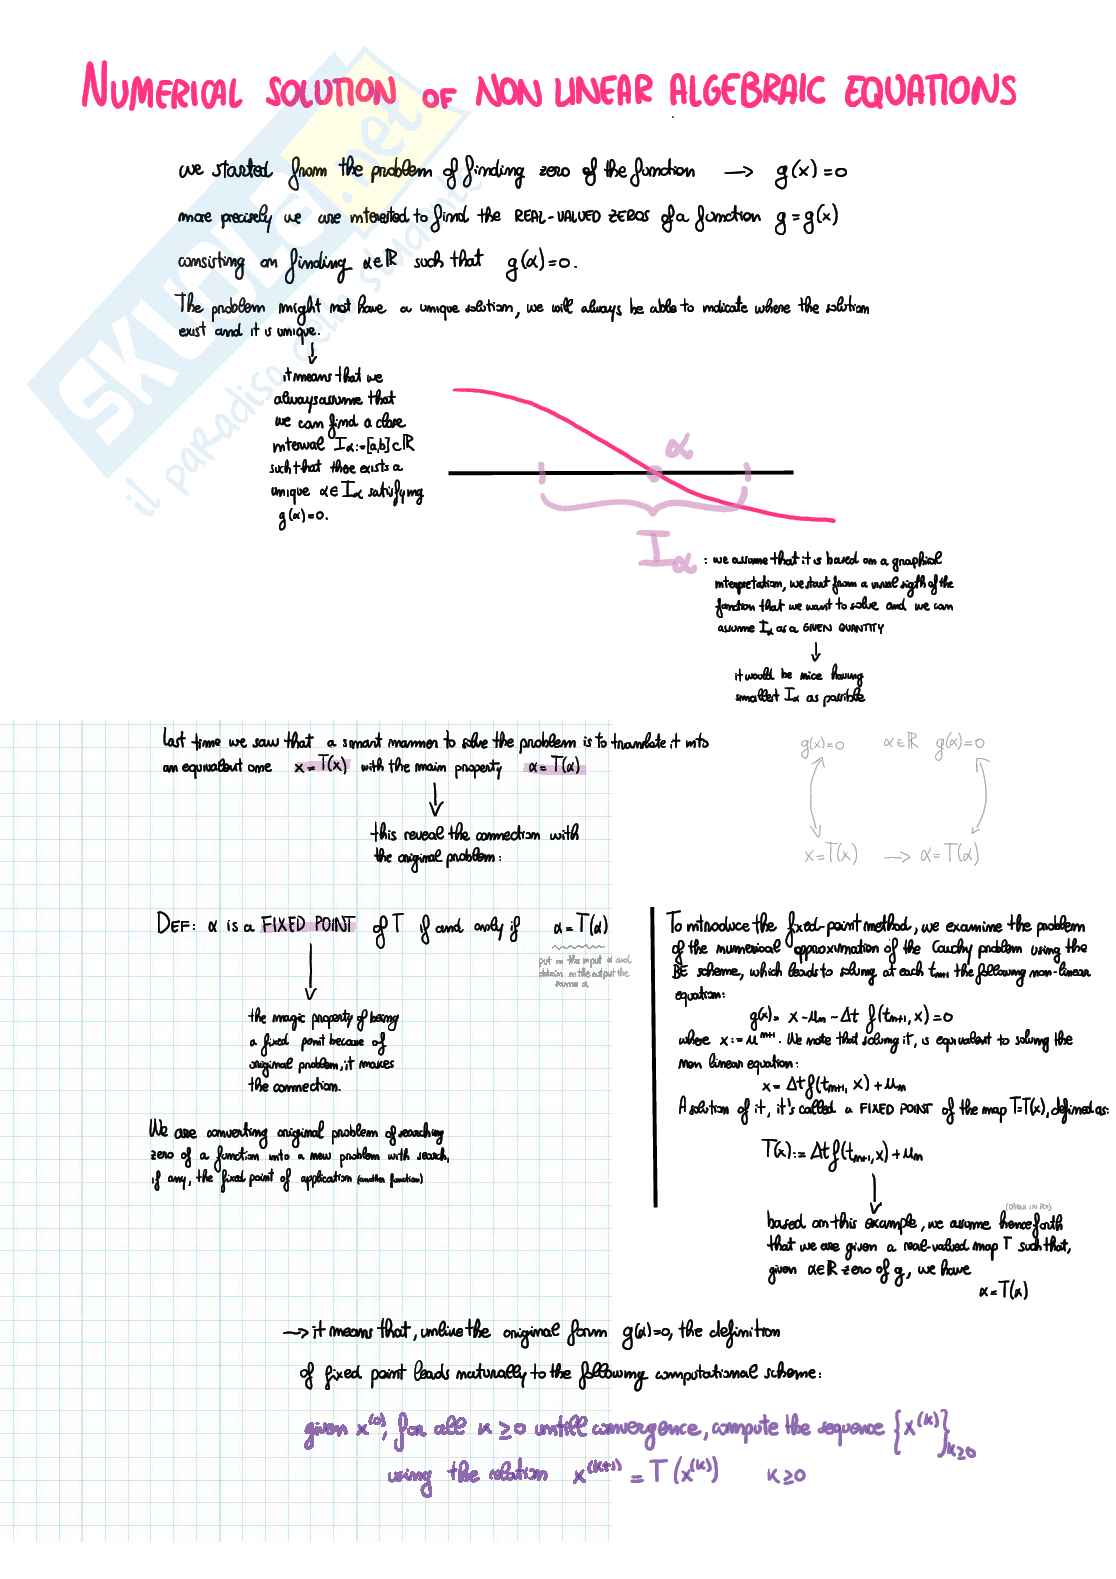 NUMERICAL SOLUTION OF NON LINEAR ALGEBRAIC EQUATIONS
we started from the problem of finding zero of the function → g(x)=0
more precisely we are interested to find the REAL-VALUED ZEROS of a function g=g(x)
consisting on finding α∈ℝ such that g(α)=0.
The problem might not have a unique solution, we will always be able to indicate where the solution
exist and it is unique.
it means that we
always assume that
we can find a close
interval Iα:=[a,b]⊂ℝ
such that there exists a
unique α∈Iα satisfying
g(α)=0.
α
Iα
: we assume that it is based on a graphical
interpretation, we start from a visual sigth of the
function that we want to solve and we can
assume Iα as a GIVEN QUANTITY
it would be nice having
smallest Iα as possible
Last time we saw that a smart manner to solve the problem is to translate it into
an equivalent one x=T(x) with the main property α=T(α)
this reveal the connection with
the original problem:
g(x)=0 α∈ℝ g(α)=0
x=T(x) → α=T(α)
DEF: α is a FIXED POINT of T if and only if α=T(α)
put in the input α and
obtain in the output the
same α
the magic property of being
a fixed point because of
original problem, it makes
the connection.
We are converting original problem of searching
zero of a function into a new problem with search,
if any, the fixed point of application (another function)
To introduce the fixed-point method, we examine the problem
of the numerical approximation of the Cauchy problem using the
BE scheme, which leads to solving at each tn+1 the following non-linear
equation:
g(x)= x-un-Δt f(tn+1,x)=0
where x:=u^n+1. We note that solving it, is equivalent to solving the
non linear equation:
x= Δt f(tn+1, x)+un
A solution of it, it's called a FIXED POINT of the map T=T(x), defined as:
T(x):= Δt f(tn+1,x)+un
based on this example, we assume henceforth
that we are given a real-valued map T such that,
given α∈ℝ zero of g, we have
α=T(α)
→ it means that, unlike the original form g(α)=0, the definition
of fixed point leads naturally to the following computational scheme:
given x^(0), for all k≥0 untill convergence, compute the sequence {x^(k)}k≥0
using the relation x^(k+1) = T(x^(k)) k≥0
SKUOLA.net
il paradiso dello studente